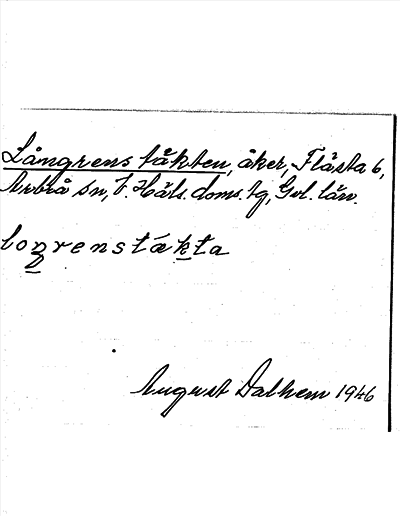 Långrenstäkten, åker, Flästa 6,
Arbrå sn, V. Häls. doms. tg, Gvl. län.
loŋrenstákta
August Dalhem 1946